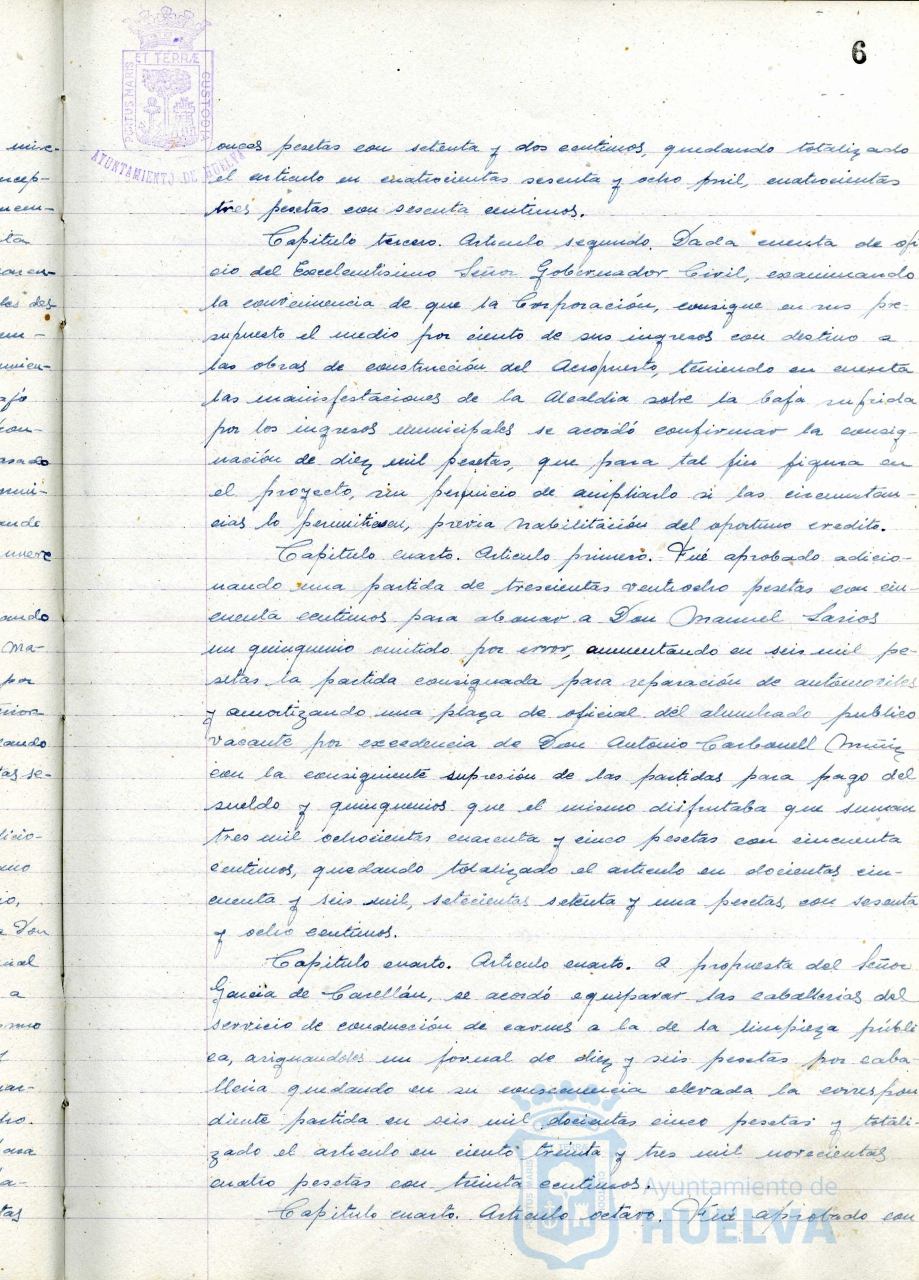 6
PORTUS MARIS
ET TERRÆ
CUSTODIA
AYUNTAMIENTO DE HUELVA
pesetas con setenta y dos centimos, quedando totalizado
el articulo en cuatrocientas sesenta y ocho mil, cuatrocientas
tres pesetas con sesenta centimos.
Capitulo tercero. Articulo segundo. Dada cuenta de ofi
cio del Excelentisimo Señor Gobernador Civil, examinando
la convicinencia de que la Corporación, consigne en sus pre-
supuesto el medio por ciento de sus ingresos con destino a
las obras de construcción del Aeropuerto, teniendo en cuenta
las manisfestaciones de la Alcaldia sobre la baja sufrida
por los ingresos municipales se acordó confirmar la consig-
nación de diez mil pesetas, que para tal fin figura en
el proyecto, sin perjuicio de ampliarlo si las circunstan-
cias lo permitiesen, previa habilitación del oportuno credito.
Capitulo cuarto. Articulo primero. Fué aprobado adicio-
nando una partida de trescientas ventiocho pesetas con cin-
cuenta centimos para abonar a Don Manuel Larios
un quinquenio omitido por error, aumentando en seis mil pe-
setas la partida consignada para reparación de automoviles
y amortizando una plaza de oficial del alumbrado publico
vacante por excedencia de Don Antonio Carbonell Muñiz
con la consiguiente supresión de las partidas para pago del
sueldo y quinquenios que el mismo disfrutaba que suman
tres mil ochocientas cuarenta y cinco pesetas con cincuenta
centimos, quedando totalizado el articulo en docientas cin-
cuenta y seis mil, setecientas setenta y una pesetas, con sesenta
y ocho centimos.
Capitulo cuarto. Articulo cuarto. A propuesta del Señor
Garcia de Casellán, se acordó equiparar las caballerias del
servicio de conducción de carnes a la de la limpieza públi
ca, asignandoles un jornal de diez y seis pesetas por caba-
lleria quedando en su consecuencia elevada la correspon
diente partida en seis mil docientas cinco pesetas y totali-
zado el articulo en ciento treinta y tres mil novecientas
cuatro pesetas con treinta centimos.
Capitulo cuarto. Articulo octavo. Fué aprobado con
Ayuntamiento de
HUELVA